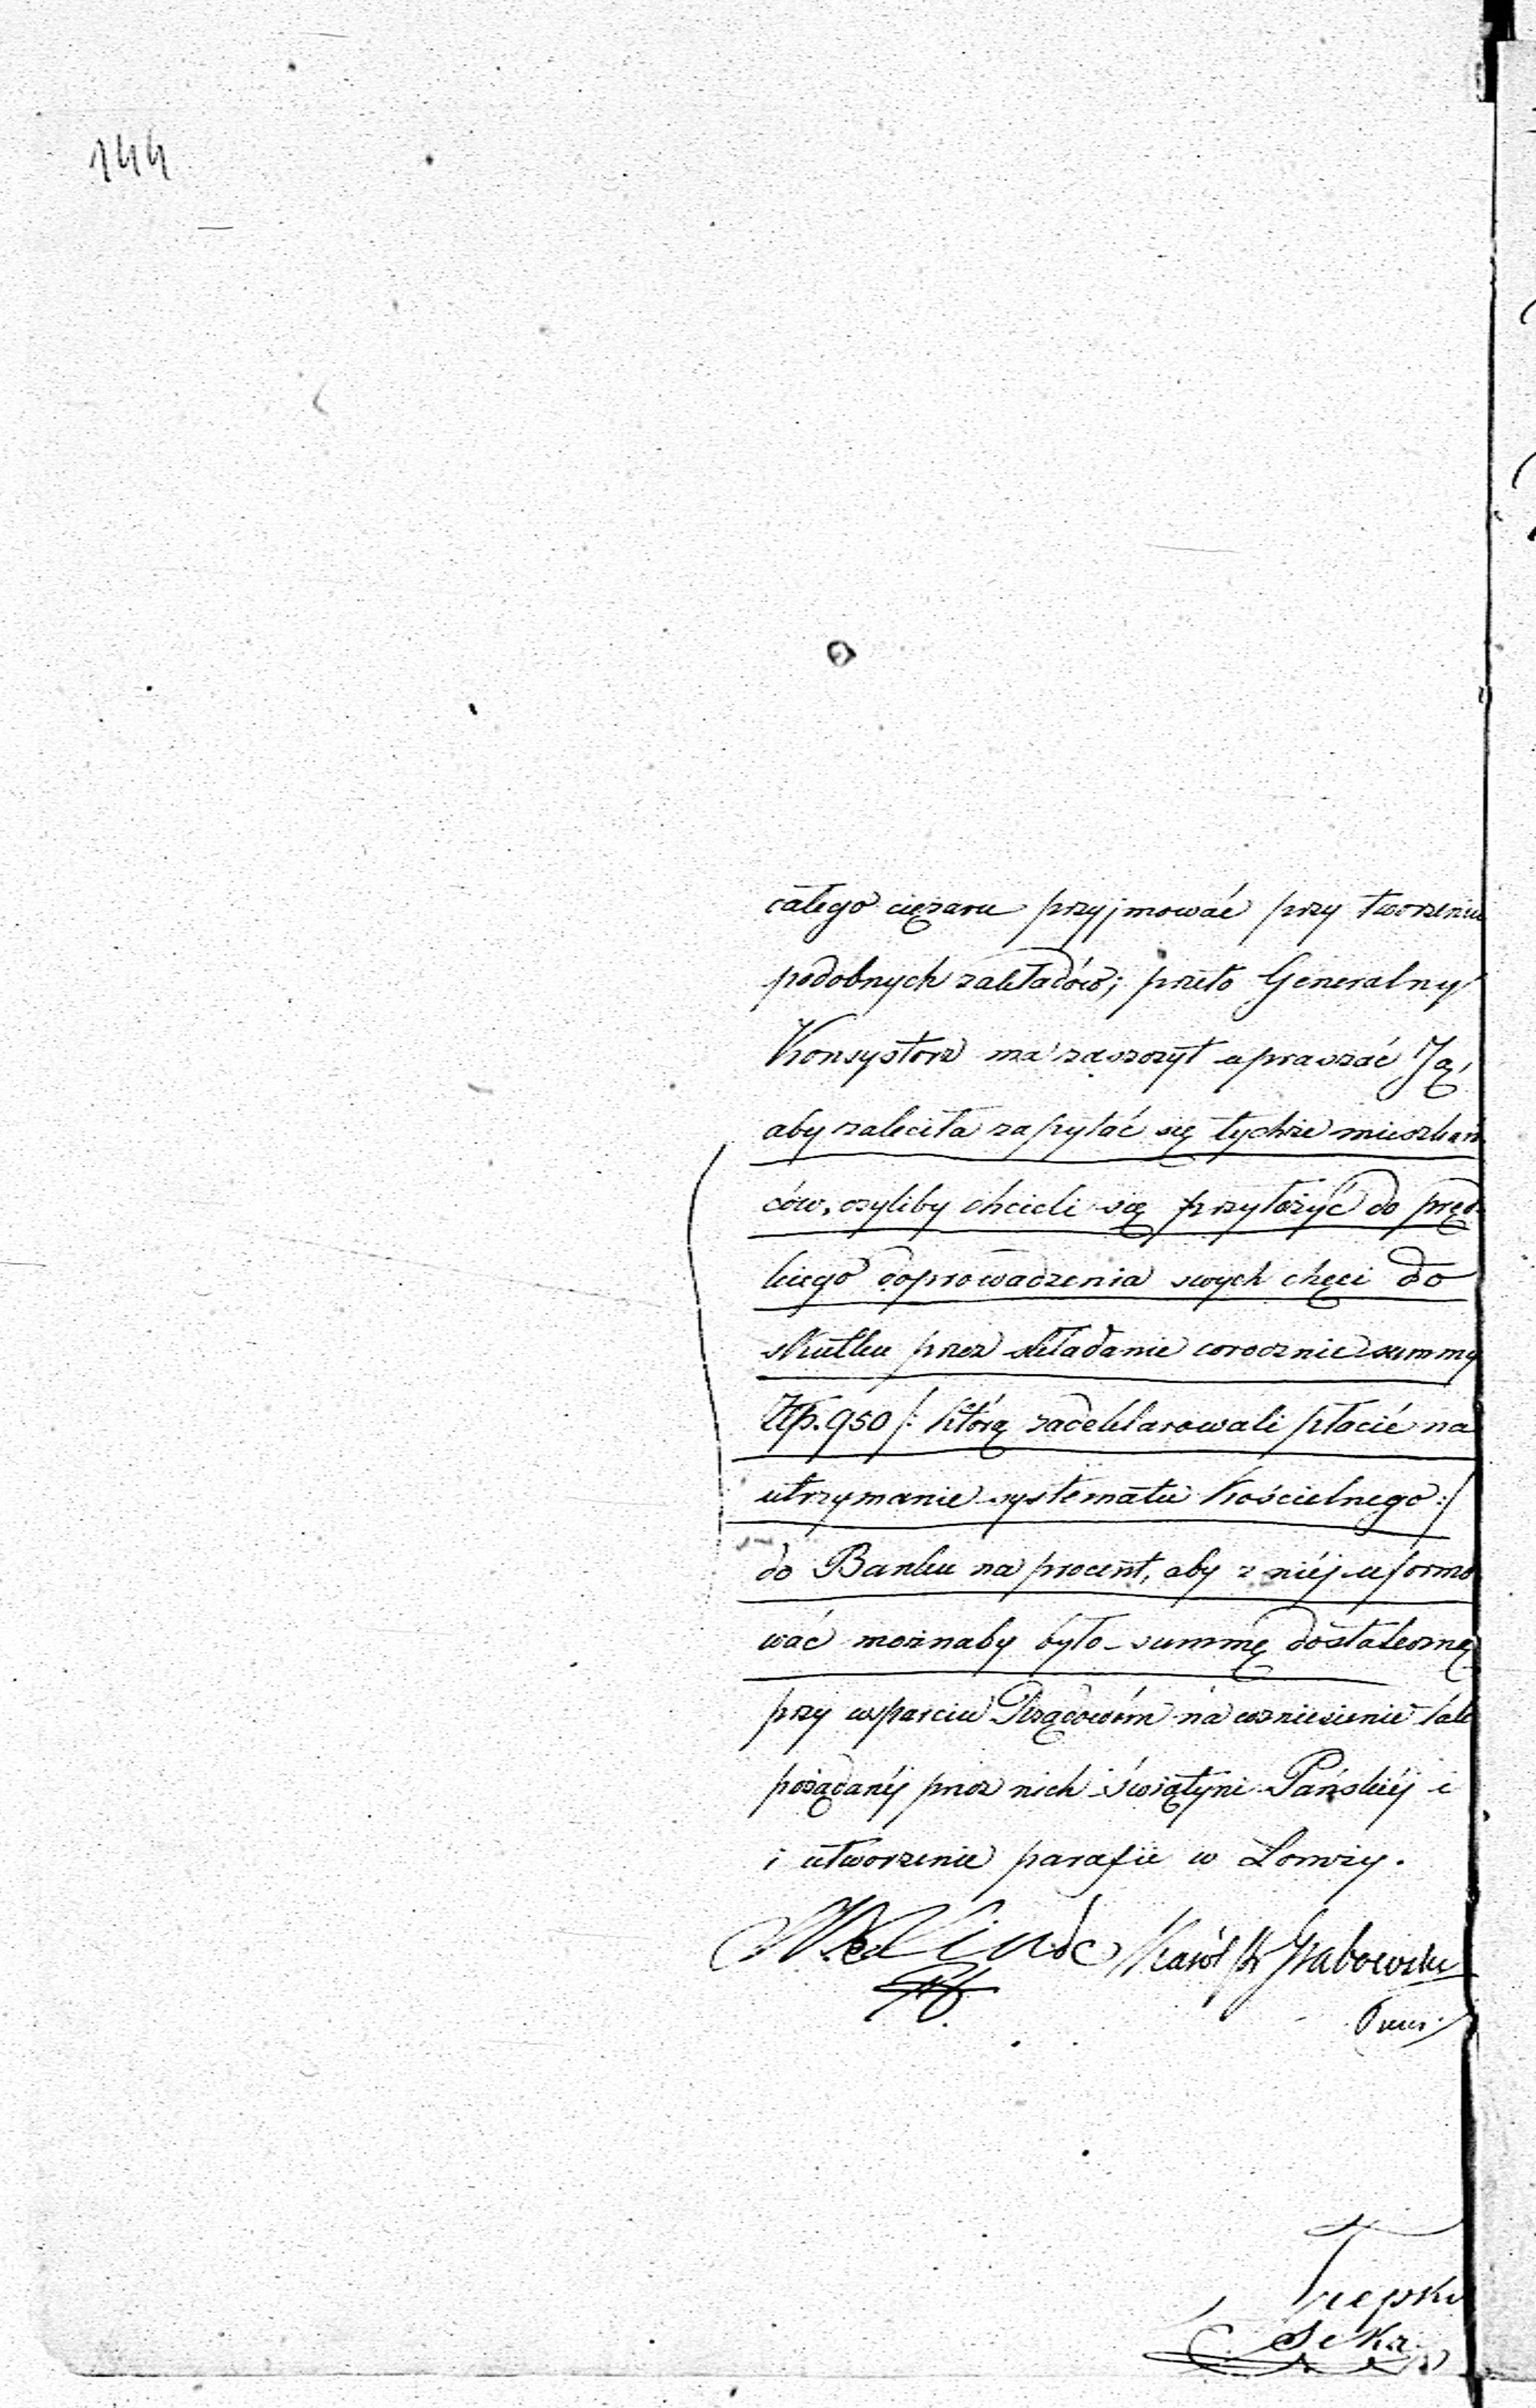 144
całego ciężaru przyjmować przy tworzeniu
podobnych zakładów; przeto Generalny
Konsystorz ma zaszczyt upraszać Ją,
aby zaleciła zapytać się tychże mieszkań
ców, czyliby chcieli się przyłożyć do pręd
kiego doprowadzenia swych chęci do
skutku przez składanie corocznie summy
Złp. 950 /: którą zadeklarowali płacić na
utrzymanie systematu Kościelnego :/
do Banku na procent, aby z niéj uformo
wać możnaby było summę dostateczną
przy wsparciu Rządowém na wzniesienie tak
pożądanéj przez nich świątyni Pańskiéj i
i utworzenie parafii w Łomży.
Karól Grabowski
Trepka
Sekr.